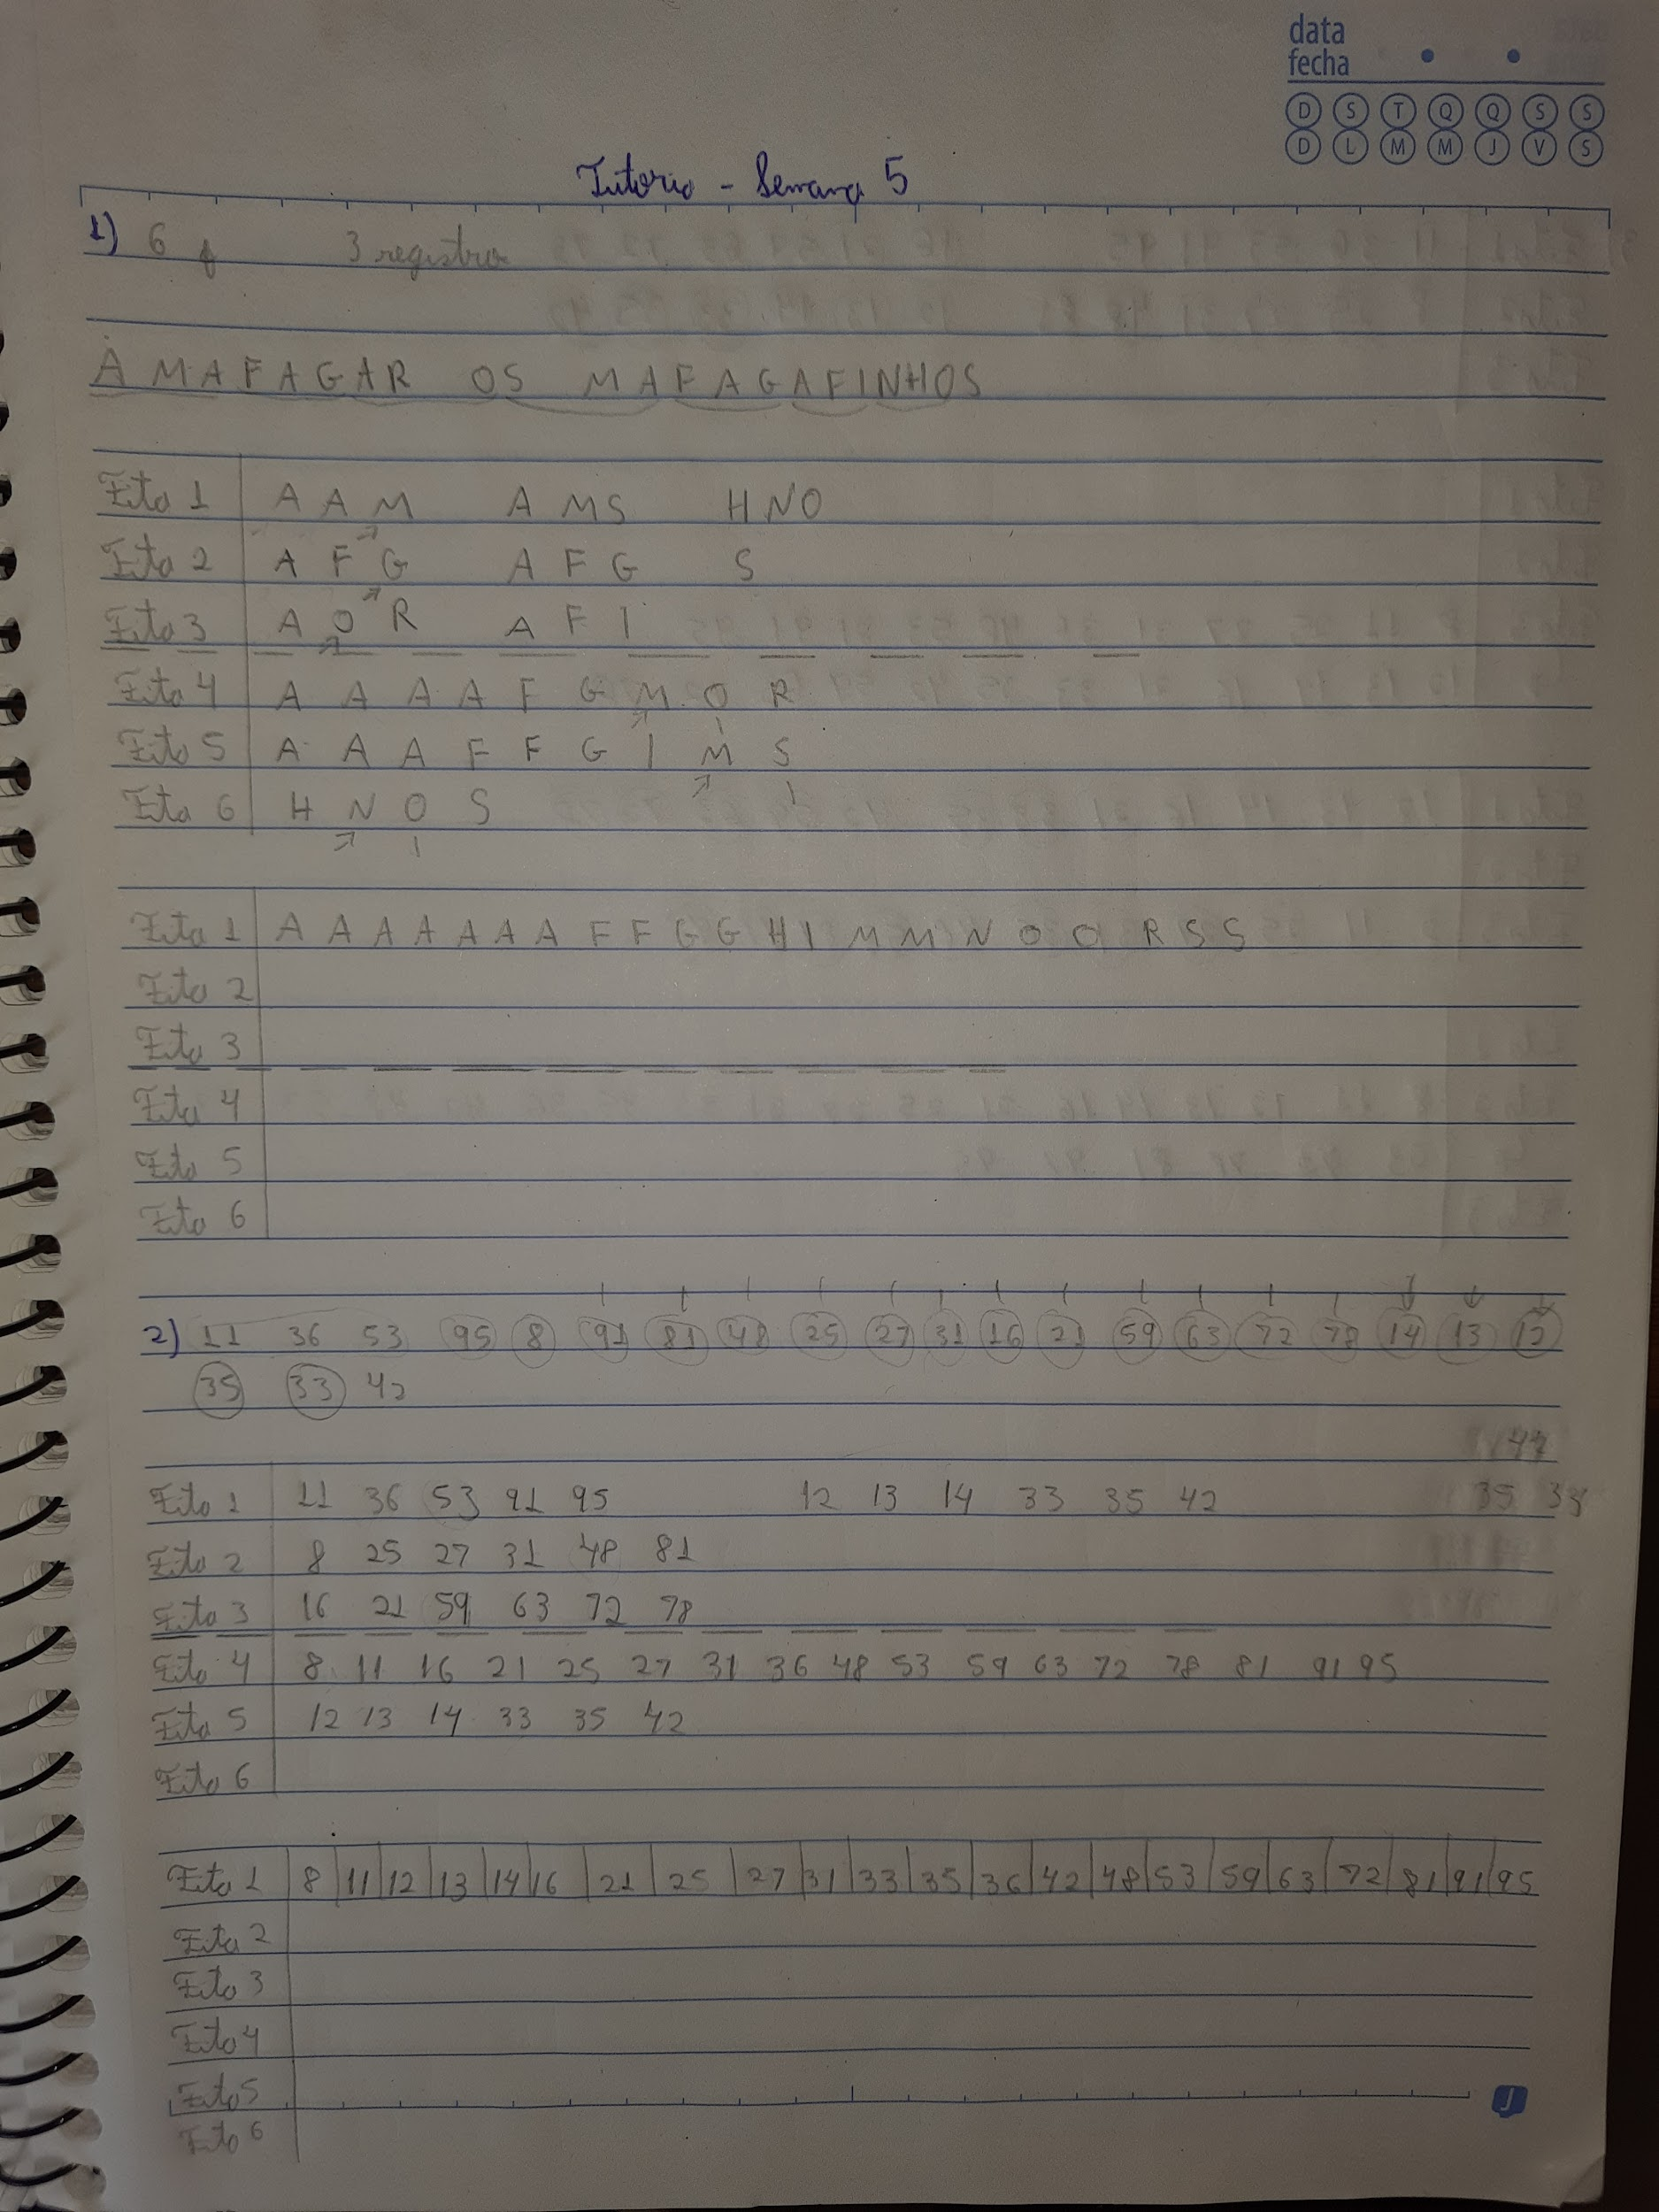 data
fecha
D S T Q Q S S
D L M M J V S
Tutorio - Semana 5
1) 6 f 3 registro
A MAFAGAR OS MAFAGAFINHOS
Fita 1 A A M A M S H N O
Fita 2 A F G A F G S
Fita 3 A O R A F I
Fita 4 A A A A F G M O R
Fita 5 A A A F F G I M S
Fita 6 H N O S
Fita 1 A A A A A A A F F G G H I M M N O O R S S
Fita 2
Fita 3
Fita 4
Fita 5
Fita 6
2) 11 36 53 95 8 91 81 48 25 27 31 16 21 59 63 72 78 14 13 12
35 33 42
Fita 1 11 36 53 91 95 12 13 14 33 35 42
Fita 2 8 25 27 31 48 81
Fita 3 16 21 59 63 72 78
Fita 4 8 11 16 21 25 27 31 36 48 53 59 63 72 78 81 91 95
Fita 5 12 13 14 33 35 42
Fita 6
Fita 1 8 11 12 13 14 16 21 25 27 31 33 35 36 42 48 53 59 63 72 81 91 95
Fita 2
Fita 3
Fita 4
Fita 5
Fita 6